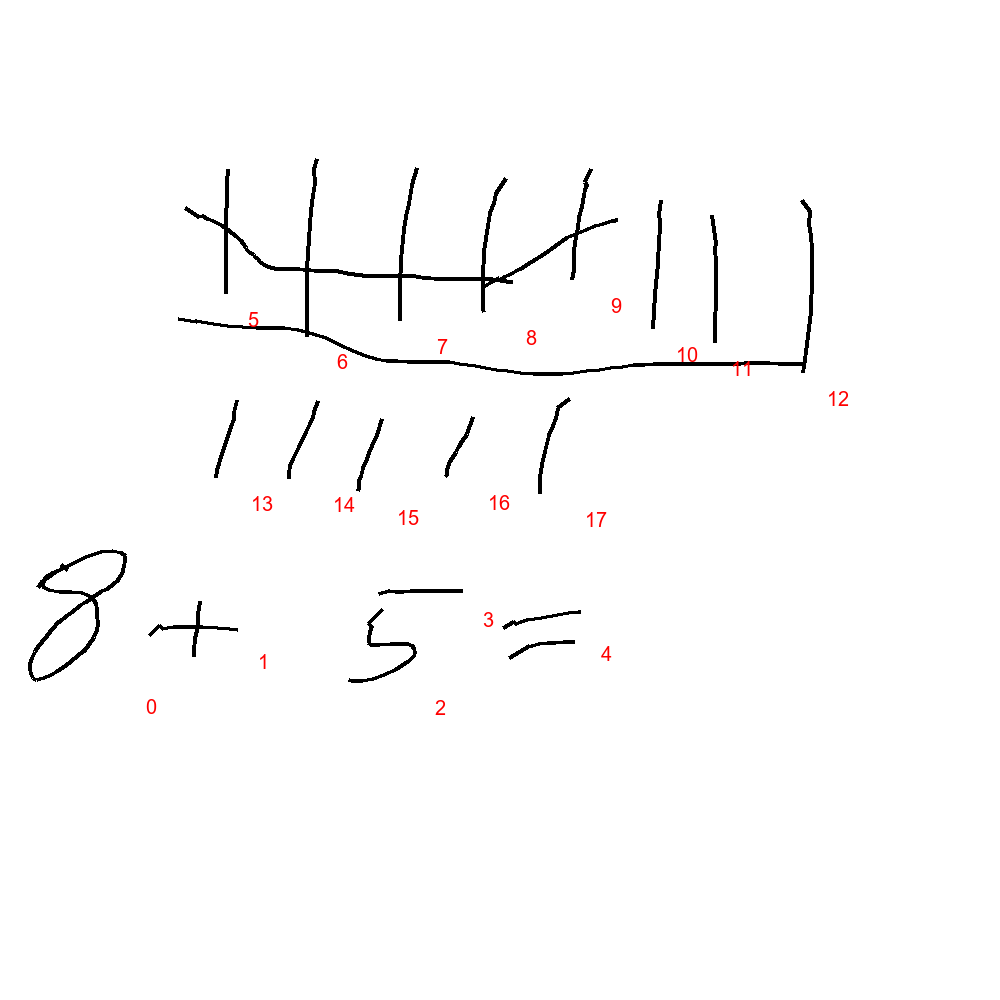 5 6 7 8 9 10 11 12
13 14 15 16 17
8 + 5 =
0 1 2 3 4